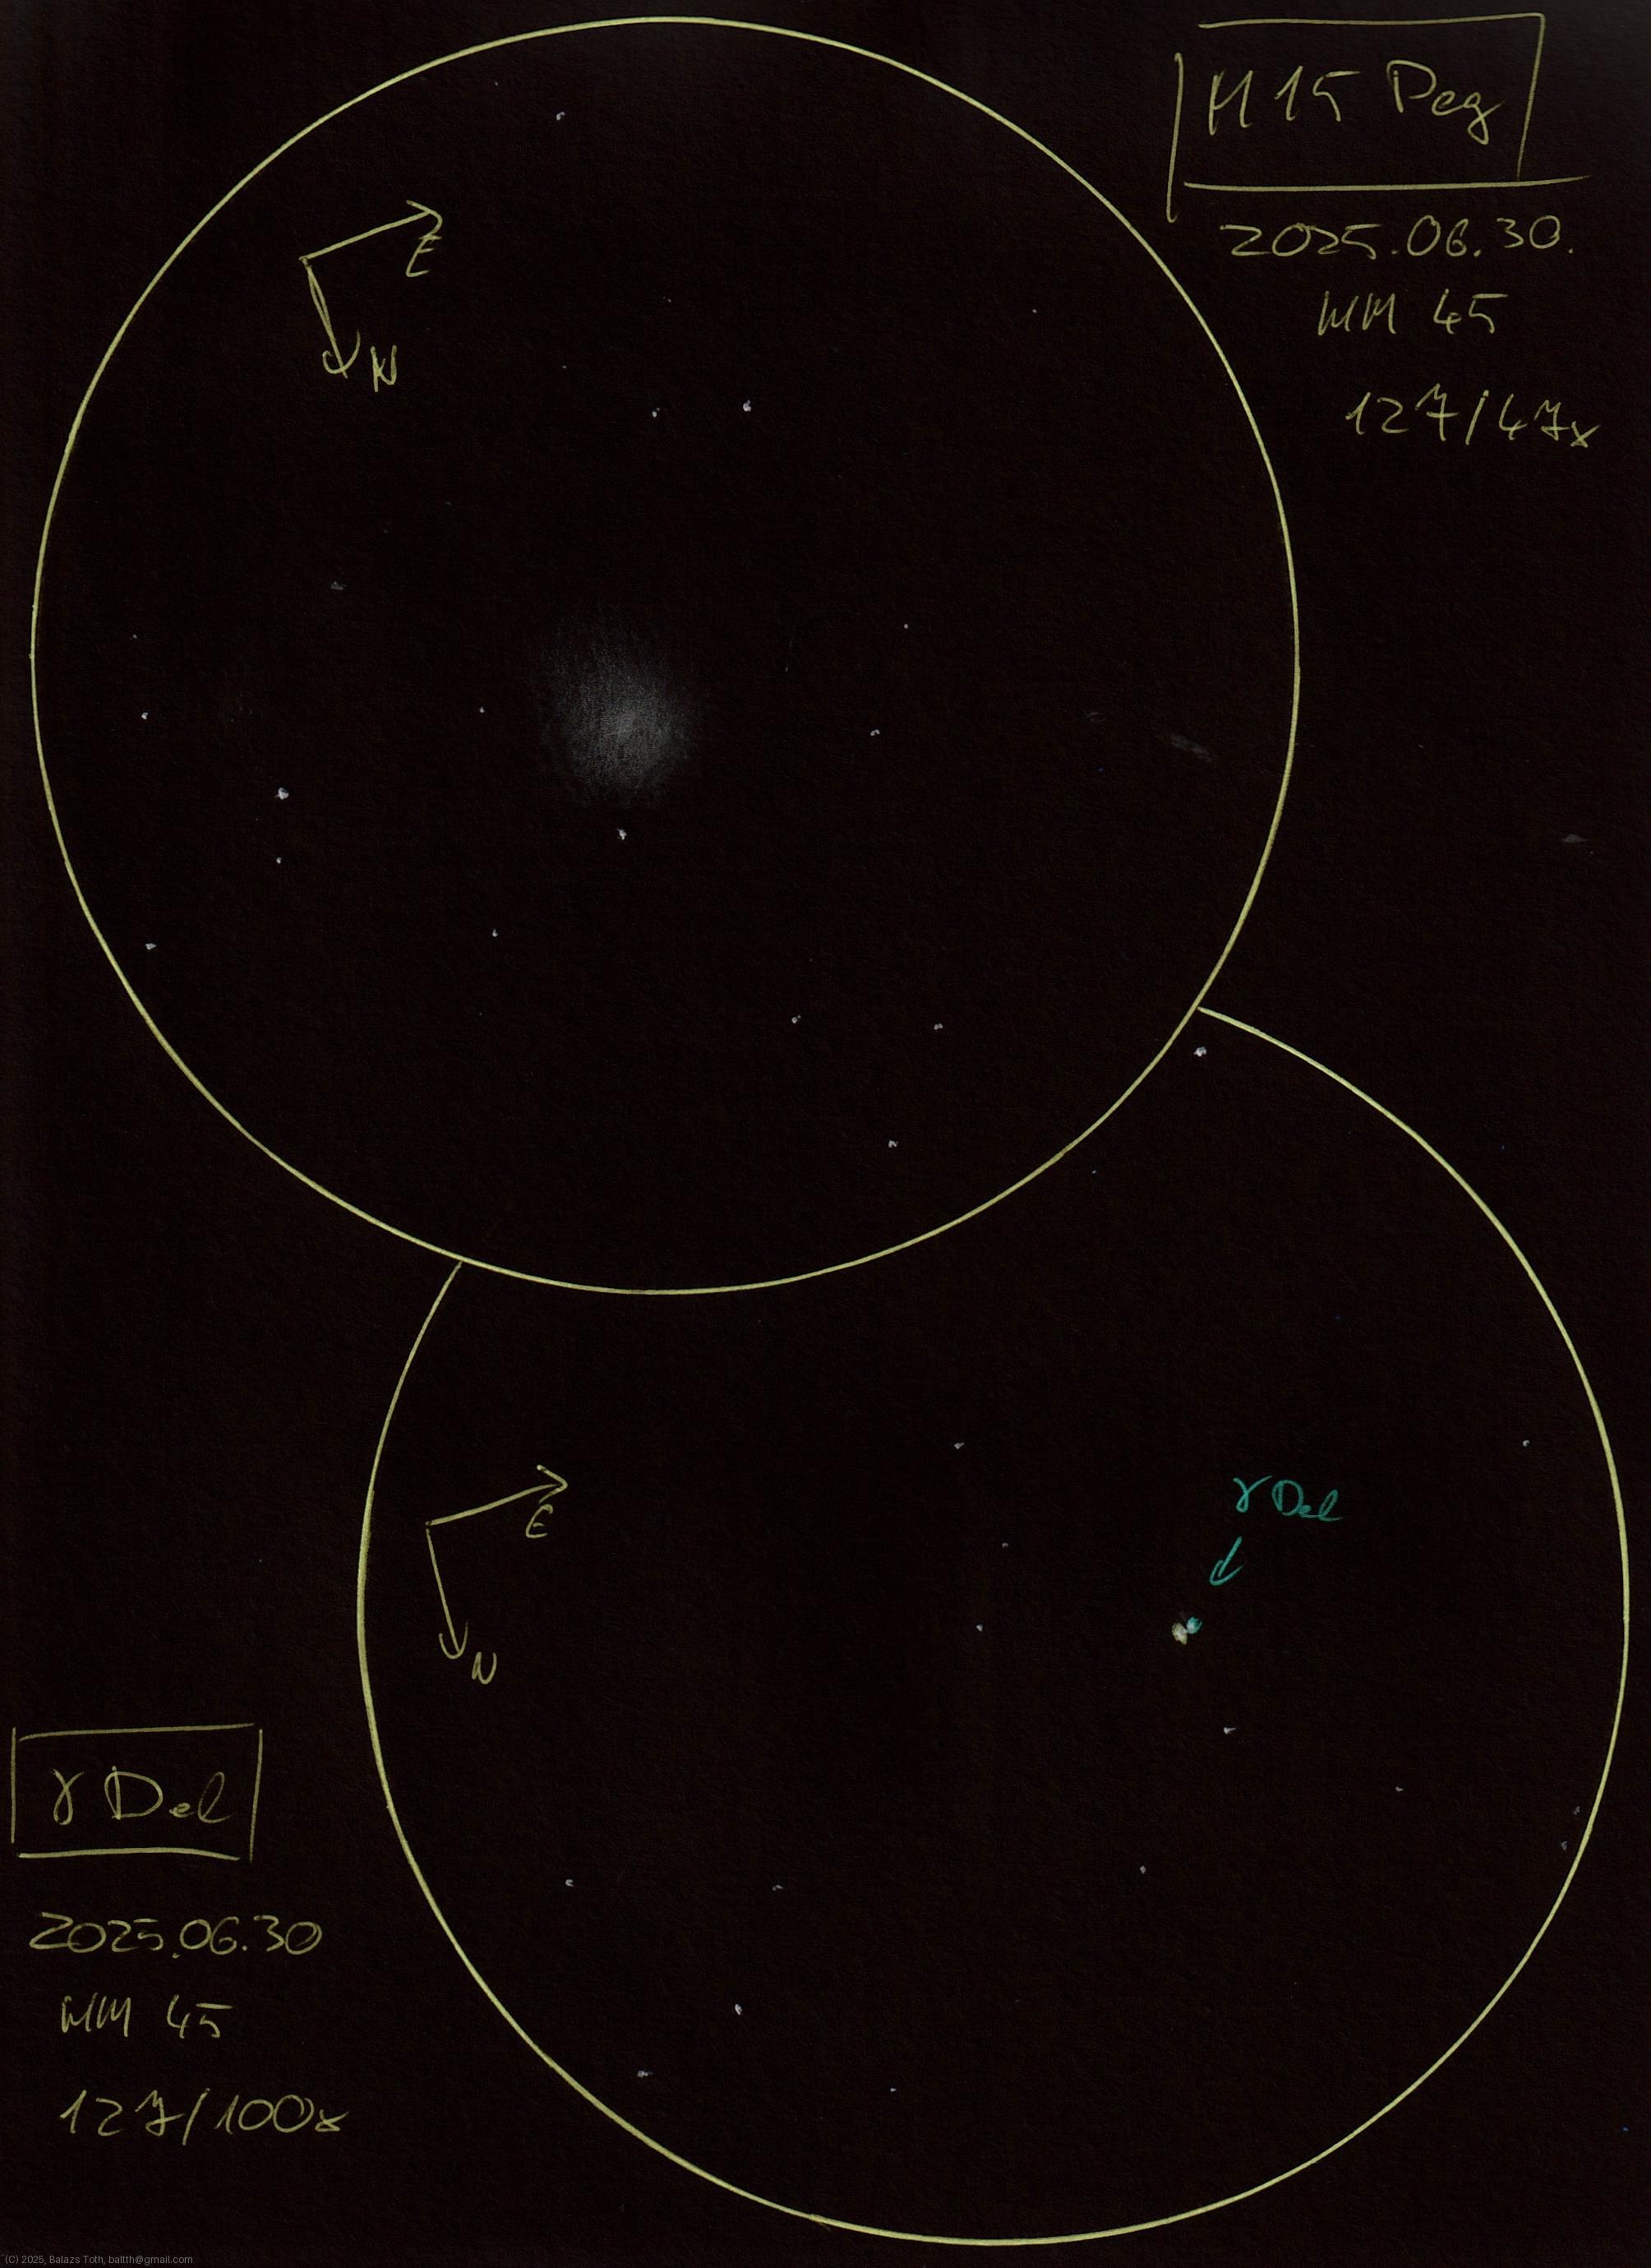 M15 Peg
2025.06.30.
MM 45
127/47x
E
N
γ Del
E
N
γ Del
2025.06.30
MM 45
127/100x
(C) 2025, Balazs Toth, baltth@gmail.com